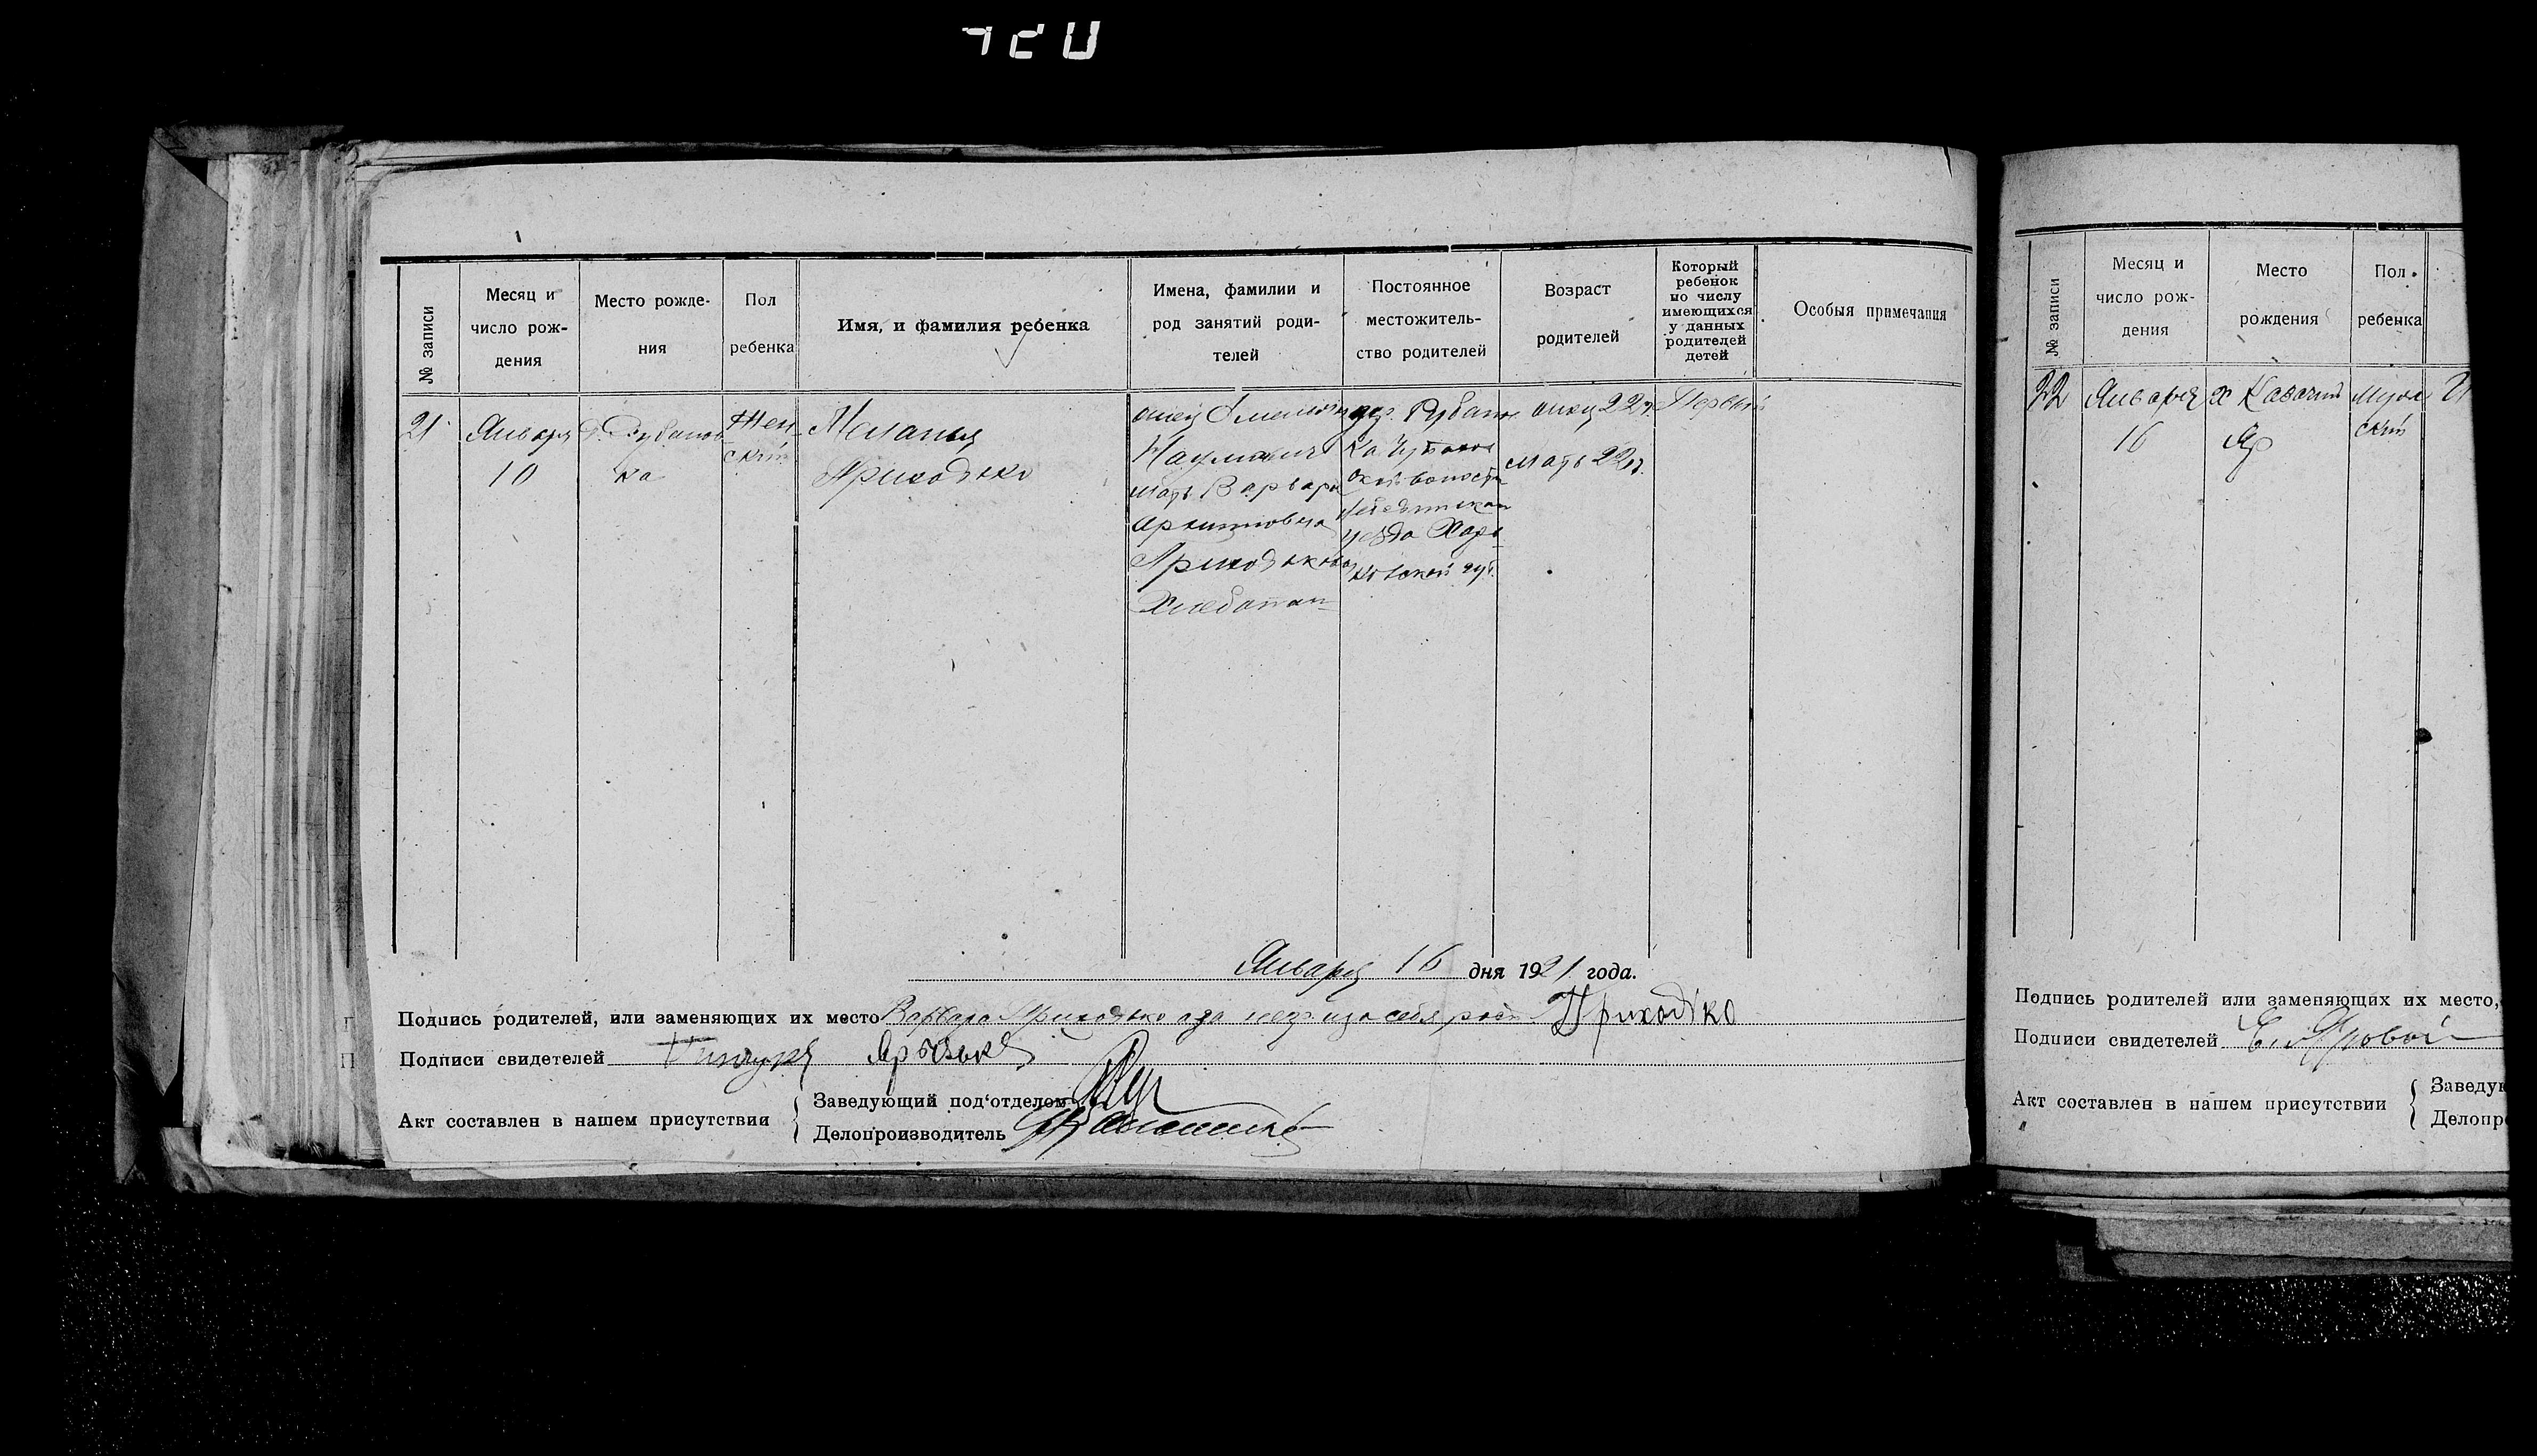 720
№ записи
Месяц и
число рож-
дения
Место рожде-
ния
Пол
ребенка
Имя, и фамилия ребенка
Имена, фамилии и
род занятий роди-
телей
Постоянное
местожитель-
ство родителей
Возраст
родителей
Который
ребенок
по числу
имеющихся
у данных
родителей
детей
Особыя примечания
21
Января
10
Рубанов
ка
Жен
ский
Меланья
Приходько
отец
Наумович
мать Варвара
Архиповна
Приходьковы
Хлебопаш
дер. Рубанов
ка
ской волости
уезда Харь
ковской губ.
отец 22 г.
мать 22 г.
Первый
Января 16 дня 1921 года.
Подпись родителей, или заменяющих их место Варвара Приходько а за неё Приходко
Подписи свидетелей
Акт составлен в нашем присутствии
Заведующий под'отделом
Делопроизводитель
№ записи
Месяц и
число рож-
дения
Место
рождения
Пол
ребенка
22
Января
16
х Казачий
Яр
Муж
ский
Подпись родителей или заменяющих их место,
Подписи свидетелей Е. Яровой
Акт составлен в нашем присутствии
Заведую
Делопр